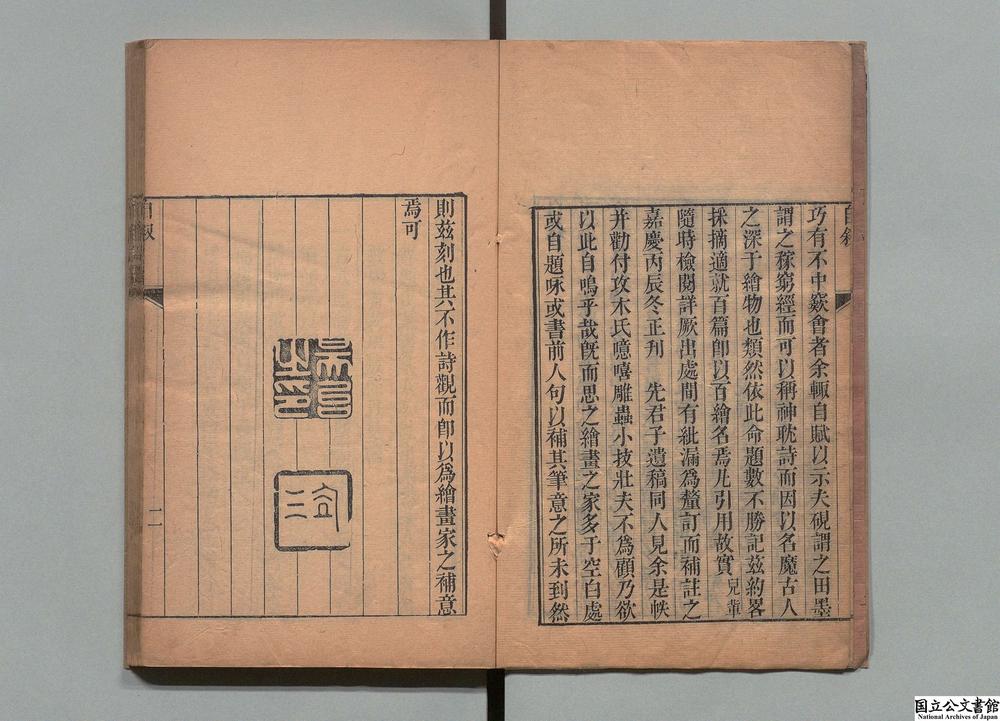 自敘
巧有不中窾會者余輒自賦以示夫硯謂之田墨
謂之稼窮經而可以稱神耽詩而因以名魔古人
之深于繪物也類然依此命題數不勝記茲約畧
採摘適就百篇卽以百繪名焉凡引用故實兒輩
隨時檢閱詳厥出處間有紕漏爲釐訂而補註之
嘉慶丙辰冬正刋　先君子遺稿同人見余是帙
并勸付攻木氏噫嘻雕蟲小技壯夫不爲顧乃欲
以此自鳴乎哉旣而思之繪畫之家多于空白處
或自題咏或書前人句以補其筆意之所未到然
則茲刻也其不作詩觀而卽以爲繪畫家之補意
焉可
自敘
二
国立公文書館
National Archives of Japan